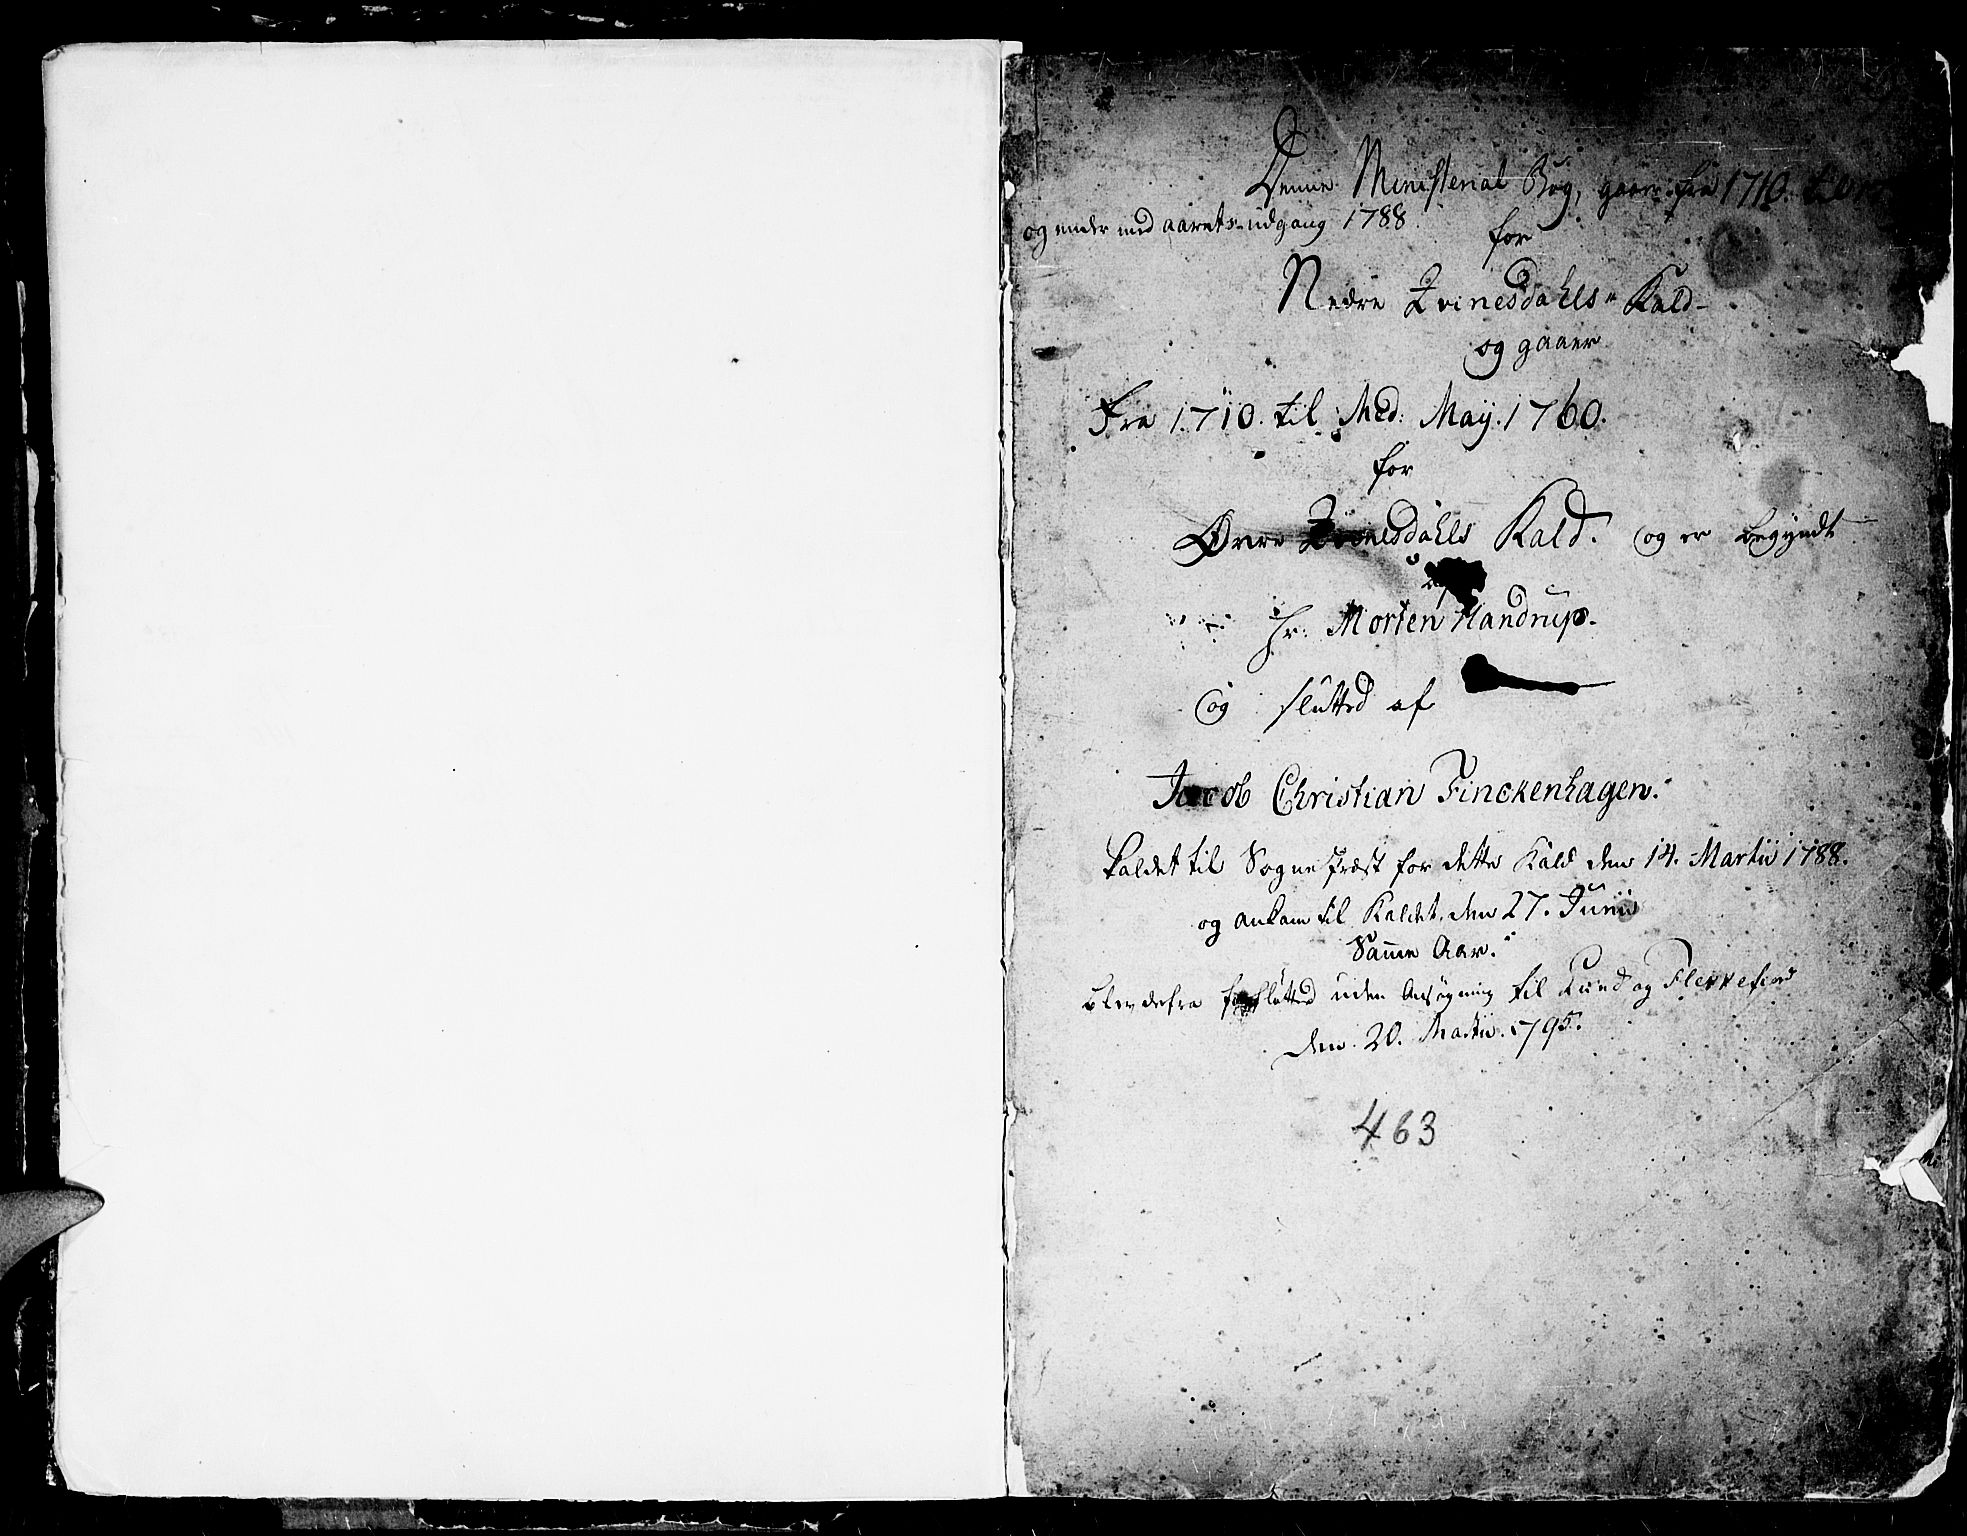 Denne Ministerial Bog, gaaer fra 1710. til
og ender med aarets udgang 1788
for
Nedre Qvinesdahls Kald
og gaaer
Fra 1710. til Med: May. 1760.
for
Øvre Qvinesdahls Kald. og er begyndt
af
Hr. Morten Handrup.
og slutted af
Jacob Christian Finckenhagen.
kaldet til Sogne Præst for dette Kald den 14. Martii 1788.
og ankom til Kaldet den 27. Junii
Samme Aar.
blev defra forflötted uden Ansøgning til Lund og Flekkefiord
den 20. Martii. 1795.
463